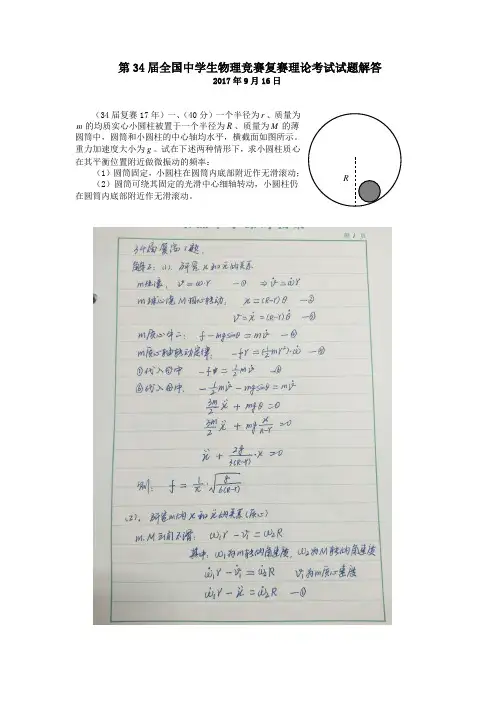 第34届全国中学生物理竞赛复赛理论考试试题解答
2017年9月16日
(34届复赛17年)一、(40分)一个半径为r、质量为
m的均质实心小圆柱被置于一个半径为R、质量为M的薄
圆筒中,圆筒和小圆柱的中心轴均水平,横截面如图所示。
重力加速度大小为g。试在下述两种情形下,求小圆柱质心
在其平衡位置附近做微振动的频率:
(1)圆筒固定,小圆柱在圆筒内底部附近作无滑滚动;
(2)圆筒可绕其固定的光滑中心细轴转动,小圆柱仍
在圆筒内底部附近作无滑滚动。
R
第 1 页
34届复赛1题.
(1). 研究x和ẍ的关系
v=ωr —① ⇒ v̇=ω̇r
x=(R-r)θ —②
v=ẋ=(R-r)θ̇ —③
f-mgsinθ=mv̇ —④
-fr=(½mr²)·ω̇ —⑤
①代入⑤中 -f=½mv̇ —⑥
⑥代入④中, -½mv̇-mgsinθ=mv̇
3m/2 ẍ+mgθ=0
3m/2 ẍ+mg x/(R-r)=0
ẍ+2g/3(R-r)·x=0
则: f=1/π·√(g/6(R-r))
(2). 研究m的x和ẍ的关系(质心)
m.M之间不滑: ω₁r-v₁=ω₂R
其中, ω₁为m转的角速度, ω₂为M转的角速度
ω̇₁r-v̇₁=ω̇₂R v₁为m质心速度
ω̇₁r-ẍ=ω̇₂R —①